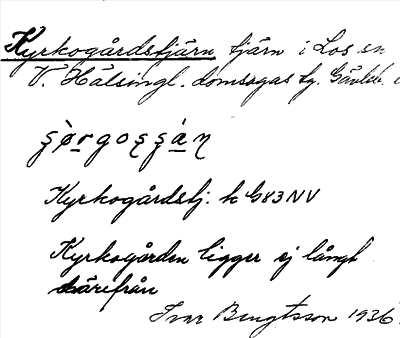 Kyrkogårdstjärn tjärn i Los sn
V. Hälsingl. domsagas tg. Gävleb.
Kyrkogårdstj: k G83NV
Kyrkogården ligger ej långt
därifrån
Ivar Bengtsson 1936